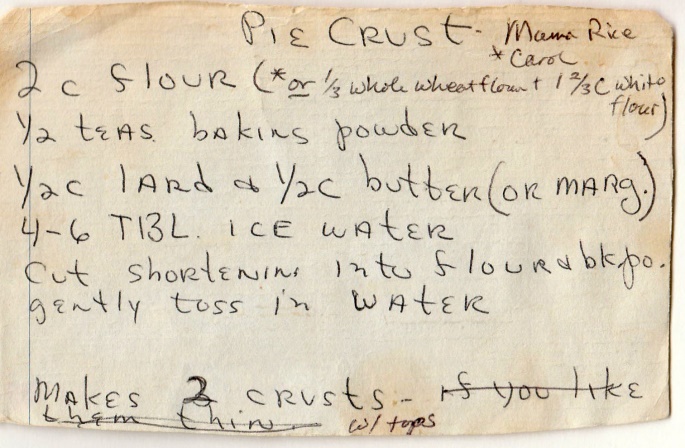 PIE CRUST - Mama Rice
* Carol
2 c flour (* or 1/3 whole wheat flour + 1 2/3 C white flour)
1/2 teas. baking powder
1/2 c lard & 1/2 c butter (or marg.)
4-6 TBL. ice water
Cut shortening into flour & bk.po.
gently toss in water
Makes 2 crusts - if you like
them thin w/ tops